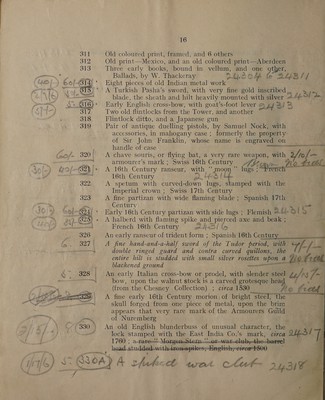 16
311 Old coloured print, framed, and 6 others
312 Old print—Mexico, and an old coloured print—Aberdeen
313 Three early books, bound in vellum, and one other,
Ballads, by W. Thackeray 24304 & 24311
40/- 60/- 314 Eight pieces of old Indian metal work
315 A Turkish Pasha's sword, with very fine gold inscribed
blade, the sheath and hilt heavily mounted with silver 24312
316 Early English cross-bow, with goat's-foot lever 24313
317 Two old flintlocks from the Tower, and another
318 Flintlock ditto, and a Japanese gun
319 Pair of antique duelling pistols, by Samuel Nock, with
accessories, in mahogany case : formerly the property
of Sir John Franklin, whose name is engraved on
handle of case
60/- 320 A chauve sourie, or flying bat, a very rare weapon, with 2/10/-
armourer's mark ; Swiss 16th Century No bid
30/- 40/- 321 A 16th Century ranseur, with "moon" lugs ; French
16th Century 24314
322 A spetum with curved-down lugs, stamped with the
Imperial crown ; Swiss 17th Century
323 A fine partizan with wide flaming blade ; Spanish 17th
Century
30/- 60/- 324 Early 16th Century partizan with side lugs ; Flemish 24315
325 A halberd with flaming spike and pierced axe and beak ;
French 16th Century 24316
326 An early ranseur of trident form ; Spanish 16th Century
6. 327 A fine hand-and-a-half sword of the Tudor period, with 7/-/-
double ringed guard and contra curved quillons, the
entire hilt is studded with small silver rosettes upon a No bid
blackened ground
5. 328 An early Italian cross-bow or prodd, with slender steel
bow, upon the walnut stock is a carved grotesque head
(from the Chesney Collection) ; circa 1530 No bid
A fine early 16th Century morion of bright steel, the
skull forged from one piece of metal, upon the brim
appears that very rare mark of the Armourers Guild
of Nuremberg
2/5/- 8/ 330 An old English blunderbuss of unusual character, the
lock stamped with the East India Co.'s mark, circa 24317
1760 ; a rare "Morgan-Stern" or war club, the barrel
head studded with iron spikes, English, circa 1500
1/17/6 5/- 330A A spiked war club 24318